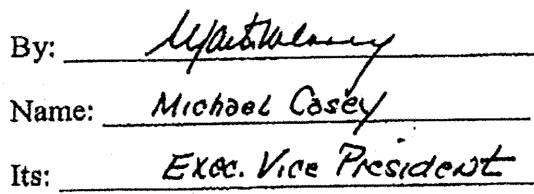 By:
Name: Michael Casey
Its: Exec. Vice President